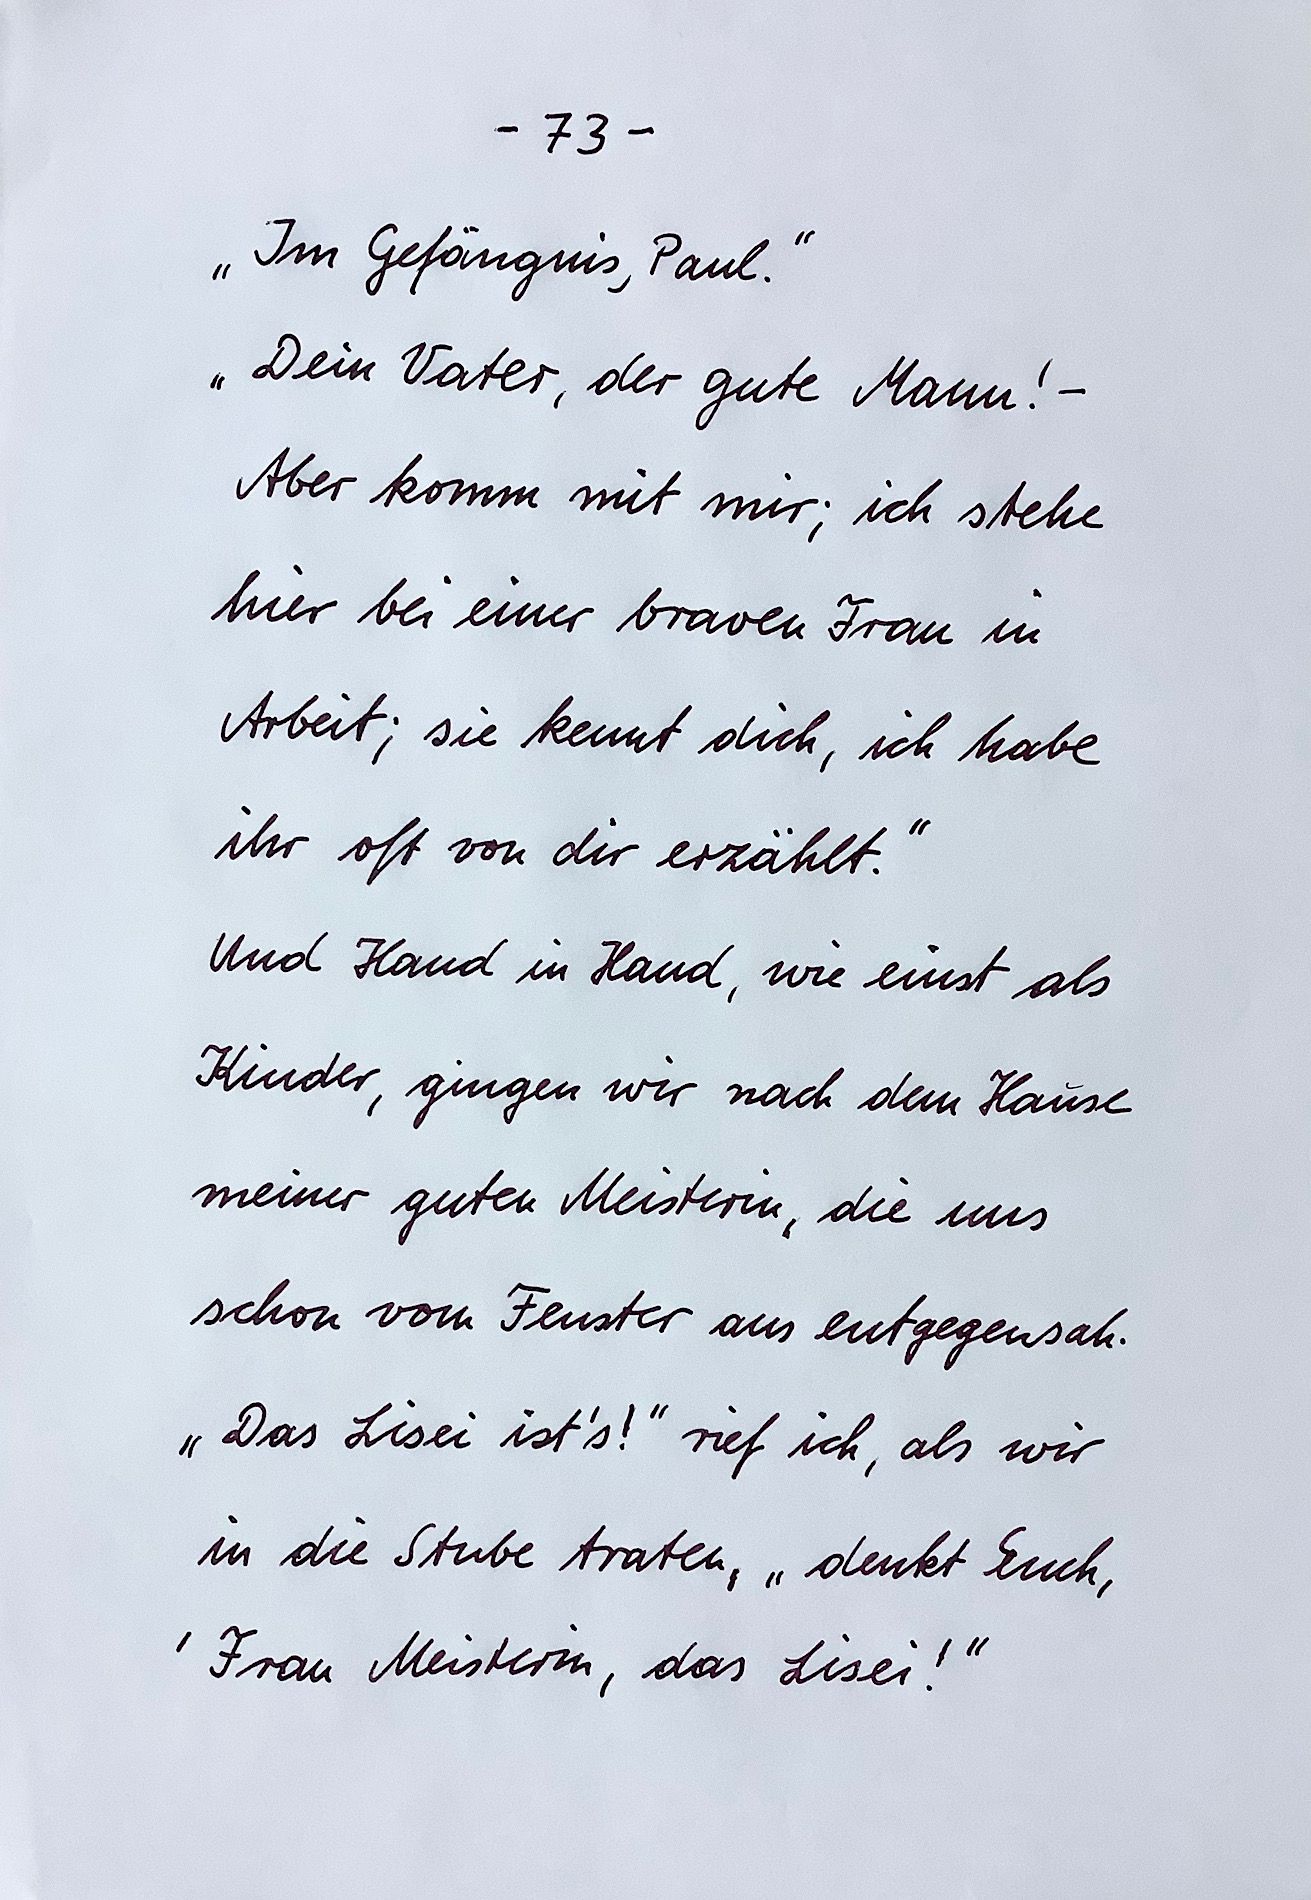 - 73 -
„Im Gefängnis, Paul.“
„Dein Vater, der gute Mann! –
Aber komm mit mir; ich stehe
hier bei einer braven Frau in
Arbeit; sie kennt dich, ich habe
ihr oft von dir erzählt.“
Und Hand in Hand, wie einst als
Kinder, gingen wir nach dem Hause
meiner guten Meisterin, die uns
schon vom Fenster aus entgegensah.
„Das Lisei ist's!“ rief ich, als wir
in die Stube traten, „denkt Euch,
' Frau Meisterin, das Lisei!“